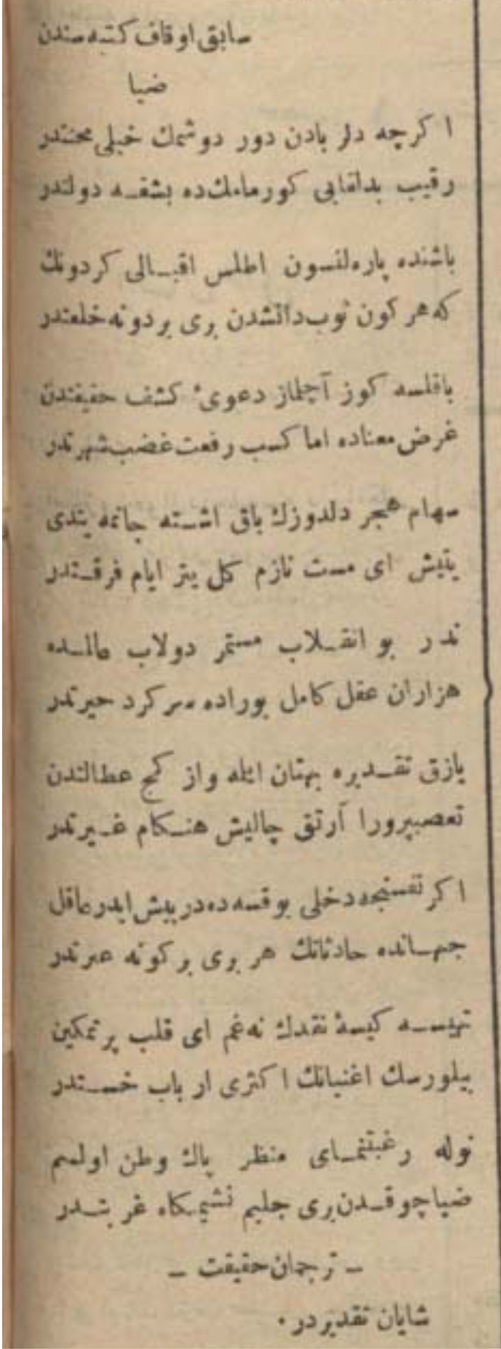 سابق اوقاف كتبه‌سندن
ضيا
اكرچه دلر بادن دور دوشمك خيلى محنتدر
رقيب بدلقايى كورمامك‌ده بشقــه دولتدر
باشنده پاره‌لنسون اطلس اقبــالى كردونك
كه هر كون ثوب دانشدن برى بر دونه خلعتدر
باقلسه كوز آچلماز دعوىء كشف حقيقتدن
غرض معناده اما كسب رفعت غصب شهرتدر
سهام هجر دلدوزك باق اشــته جانمه يتدى
يتيش اى مست نازم كل يتر ايام فرقــتدر
ندر بو انقــلاب مستمر دولاب عالمــده
هزاران عقل كامل بوراده سركرد حيرتدر
يازق تقــديره بهتان ايله واز كچ عطالتدن
تعصبپرورا آرتق چاليش هنــكام غــيرتدر
اكر نفسنجه دخلى بو قسه‌ده درپيش ايدر عاقل
جهــانده حادثاتك هر برى بركونه عبرتدر
تهيســه كيسهٔ نقدك نه غم اى قلب پرتمكين
بيلورسك اغنيانك اكثرى ارباب خســتدر
نوله رغبتنمــاى منظر پاك وطن اولسم
ضيا چوقــدن برى جايم نشيمكاه غربتــدر
ــ ترجمان حقيقت ــ
شايان تقديردر ٠